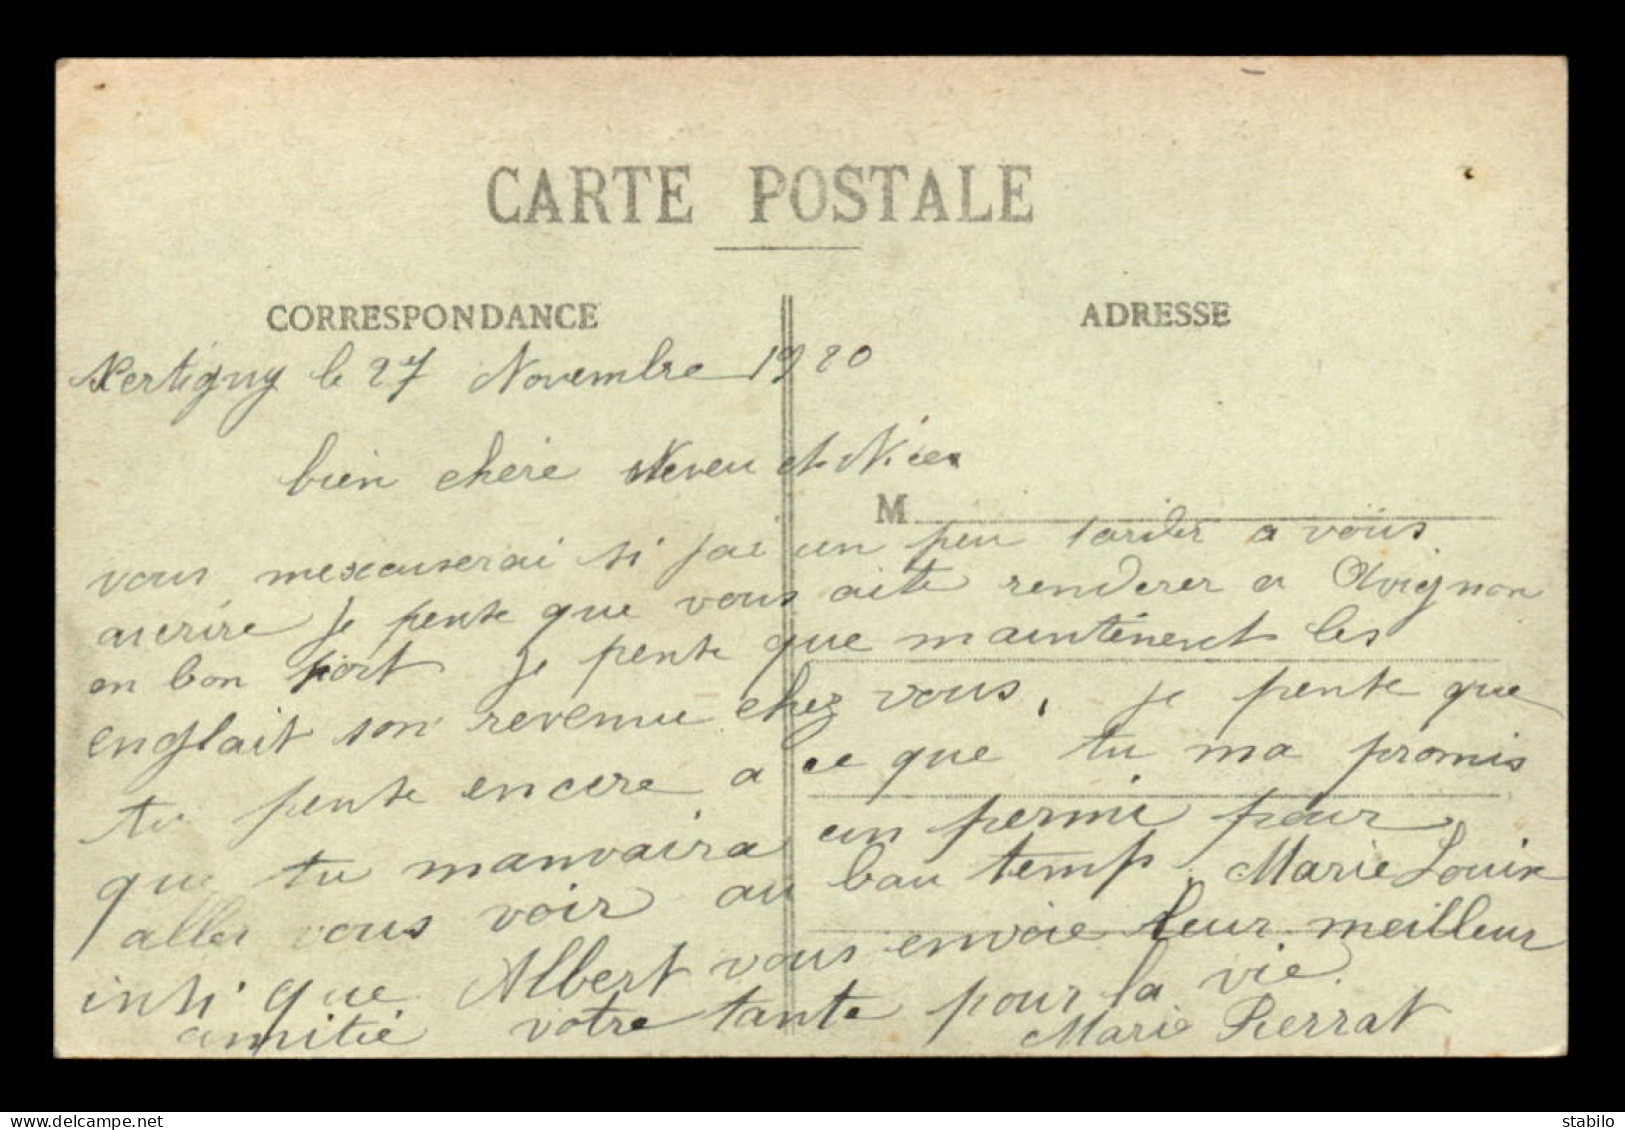 CARTE POSTALE
CORRESPONDANCE
ADRESSE
Xertigny le 27 Novembre 1920
bien chère Neveu et Nièce
M
vous mexcuserai si jai un peu tarder a vous
aicrire je pente que vous aite renderer a Avignon
en bon port je pente que maintenent les
englait son revenu chez vous, je pente que
tu pente encere a ce que tu ma promis
que tu manvaira un permi pour
aller vous voir au bau temp. Marie Louise
insi que Albert vous envoie leur meilleur
amitié votre tante pour la vie
Marie Pierrat
stabilo